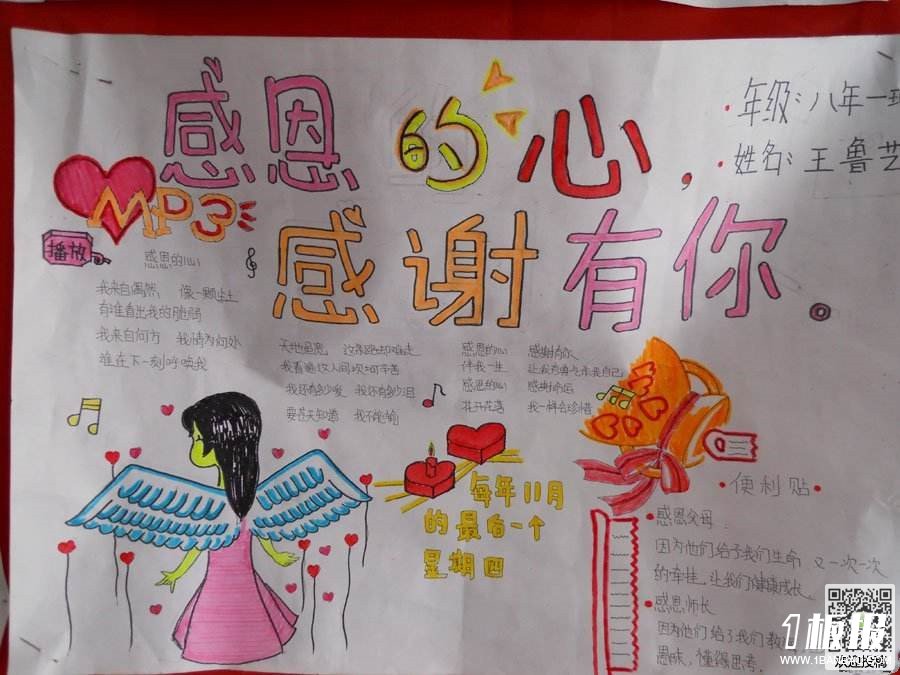 感恩的心，
年级：八年一班
姓名：王鲁艺
MP3
感谢有你。
播放
感恩的心
我来自偶然 像一颗尘土
有谁看出我的脆弱
我来自何方 我情归何处
谁在下一刻呼唤我
天地虽宽 这条路却难走
我看遍这人间坎坷辛苦
我还有多少爱 我还有多少泪
要苍天知道 我不能输
感恩的心 感谢有你
伴我一生 让我有勇气作我自己
感恩的心 感谢命运
花开花落 我一样会珍惜
每年11月
的最后一个
星期四
便利贴
感恩父母：
因为他们给予我们生命 又一次一次
的牵挂,让我们健康成长。
感恩师长
因为他们给了我们教
愚昧，懂得思考.
1板报
WWW.1BANBAO.COM
欢迎投稿